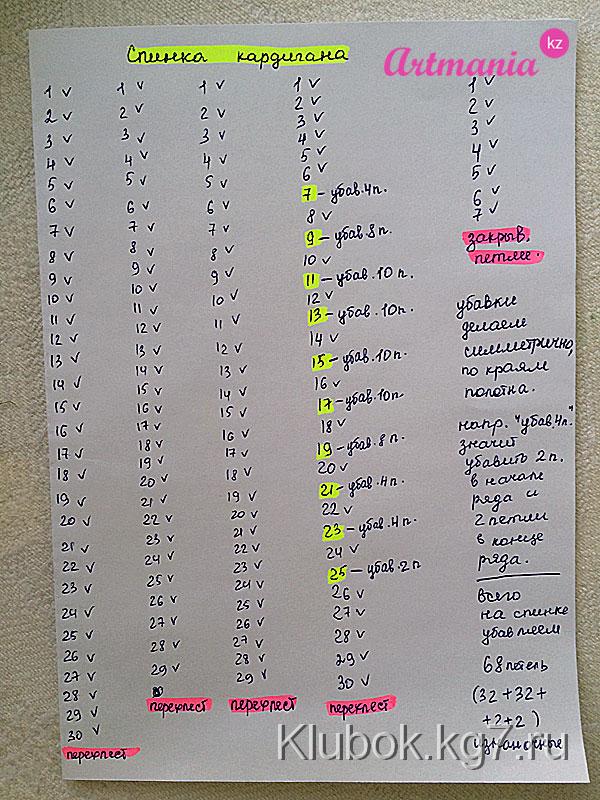 Спинка кардигана
Artmania kz
1 v
2 v
3 v
4 v
5 v
6 v
7 v
8 v
9 v
10 v
11 v
12 v
13 v
14 v
15 v
16 v
17 v
18 v
19 v
20 v
21 v
22 v
23 v
24 v
25 v
26 v
27 v
28 v
29 v
30 v
перехлест
1 v
2 v
3 v
4 v
5 v
6 v
7 v
8 v
9 v
10 v
11 v
12 v
13 v
14 v
15 v
16 v
17 v
18 v
19 v
20 v
21 v
22 v
23 v
24 v
25 v
26 v
27 v
28 v
29 v
перехлест
1 v
2 v
3 v
4 v
5 v
6 v
7 v
8 v
9 v
10 v
11 v
12 v
13 v
14 v
15 v
16 v
17 v
18 v
19 v
20 v
21 v
22 v
23 v
24 v
25 v
26 v
27 v
28 v
29 v
перехлест
1 v
2 v
3 v
4 v
5 v
6 v
7 – убав. 4 п.
8 v
9 – убав. 8 п.
10 v
11 – убав. 10 п.
12 v
13 – убав. 10 п.
14 v
15 – убав. 10 п.
16 v
17 – убав. 10 п.
18 v
19 – убав. 8 п.
20 v
21 – убав. 4 п.
22 v
23 – убав. 4 п.
24 v
25 – убав. 2 п
26 v
27 v
28 v
29 v
30 v
перехлест
1 v
2 v
3 v
4 v
5 v
6 v
7 v
закрыв.
петли.
убавки
делаем
симметрично,
по краям
полотна.
напр. "убав. 4 п."
значит
убавить 2 п.
в начале
ряда и
2 петли
в конце
ряда.
всего
на спинке
убавляем
68 петель
(32+32+
+2+2)
Klubok.kg7.ru